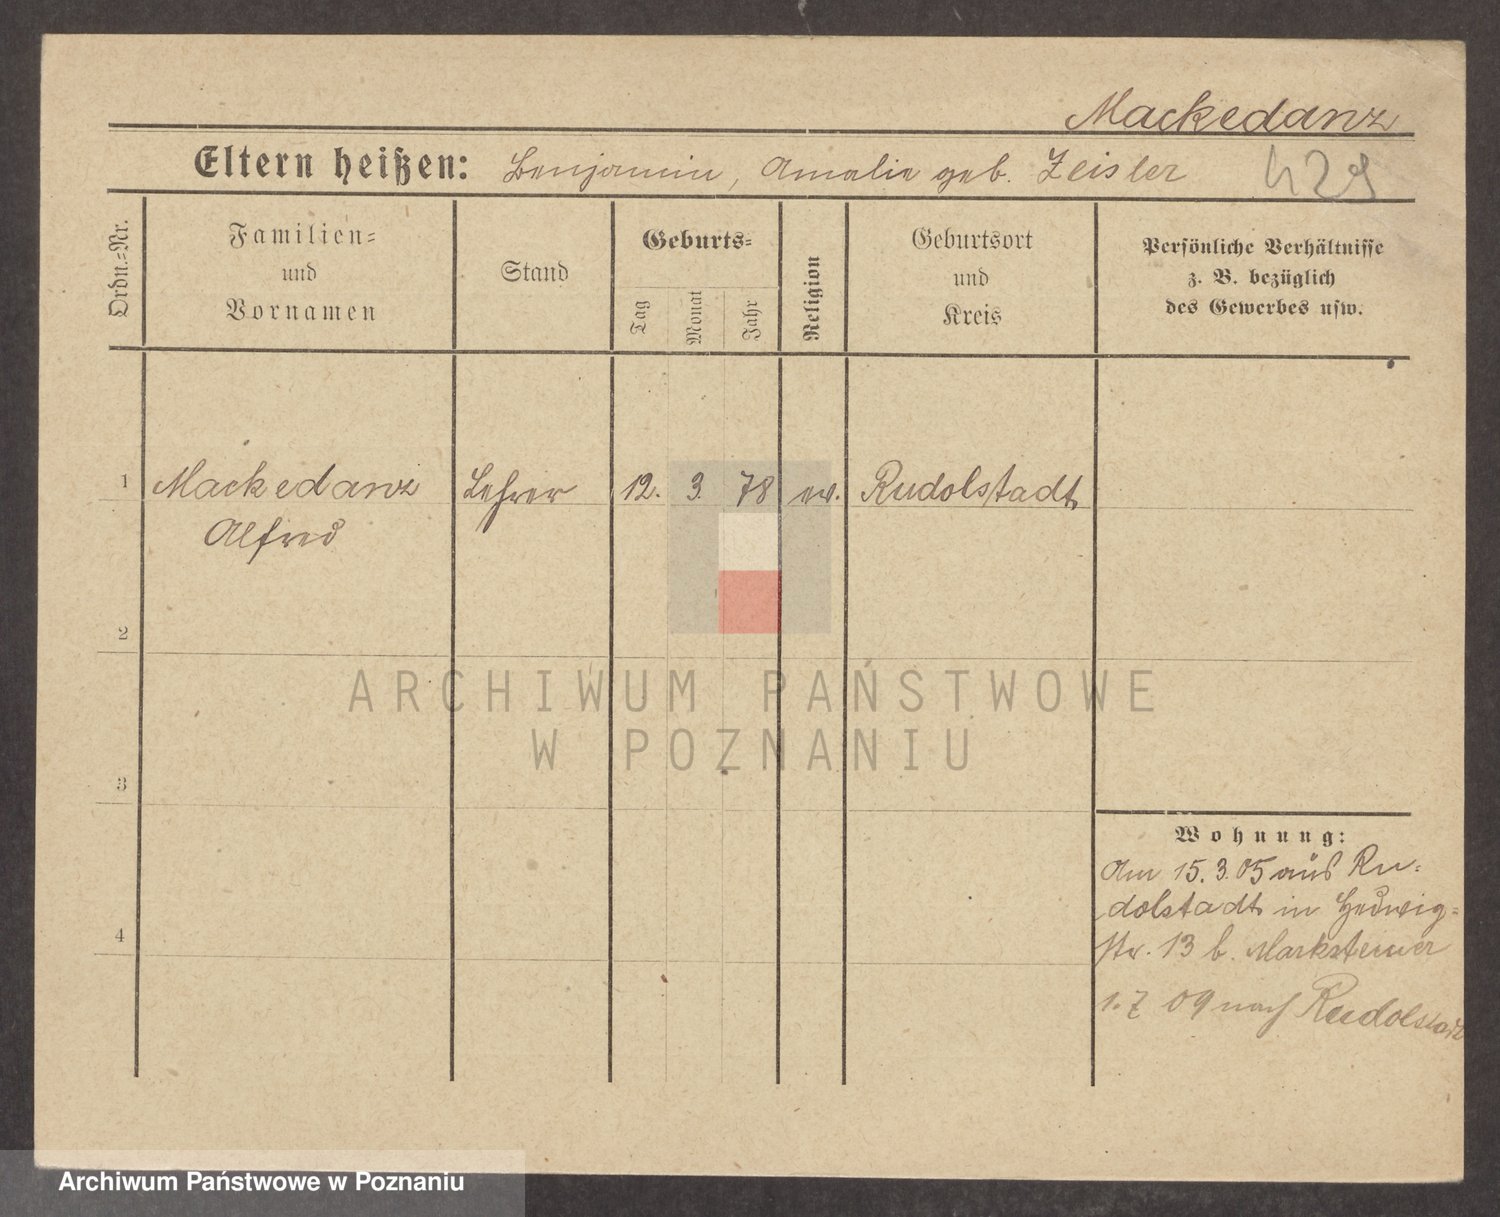 Mackedanz
Eltern heißen: Benjamin, Amalie geb. Zeisler
429
Ordn.-Nr.
Familien-
und
Vornamen
Stand
Geburts-
Tag
Monat
Jahr
Religion
Geburtsort
und
Kreis
Persönliche Verhältnisse
z. B. bezüglich
des Gewerbes usw.
1 Mackedanz Lehrer 12. 3. 78 ev. Rudolstadt
Alfred
2
ARCHIWUM PAŃSTWOWE
W POZNANIU
3
Wohnung:
Am 15.3.05 aus Ru-
dolstadt in Hedwig-
str. 13 b.
4
1.7 09 nach Rudolstadt
Archiwum Państwowe w Poznaniu